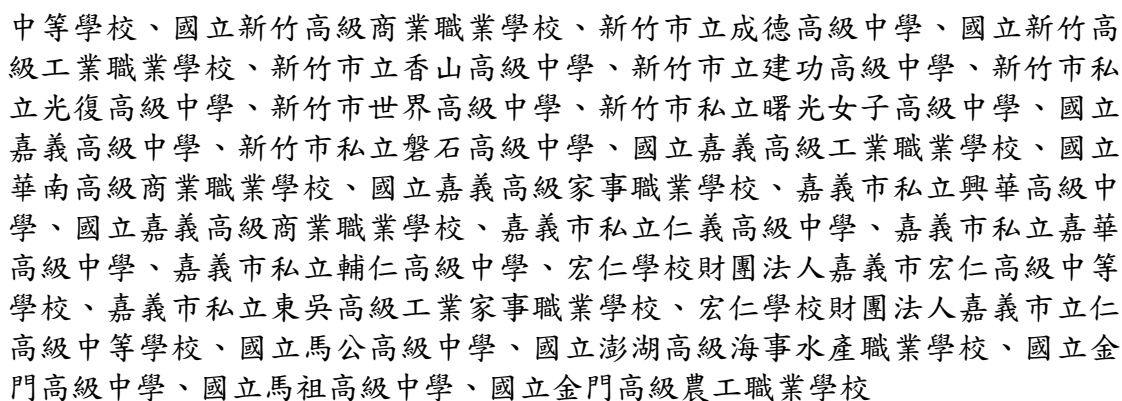 中等學校、國立新竹高級商業職業學校、新竹市立成德高級中學、國立新竹高
級工業職業學校、新竹市立香山高級中學、新竹市立建功高級中學、新竹市私
立光復高級中學、新竹市世界高級中學、新竹市私立曙光女子高級中學、國立
嘉義高級中學、新竹市私立磐石高級中學、國立嘉義高級工業職業學校、國立
華南高級商業職業學校、國立嘉義高級家事職業學校、嘉義市私立興華高級中
學、國立嘉義高級商業職業學校、嘉義市私立仁義高級中學、嘉義市私立嘉華
高級中學、嘉義市私立輔仁高級中學、宏仁學校財團法人嘉義市宏仁高級中等
學校、嘉義市私立東吳高級工業家事職業學校、宏仁學校財團法人嘉義市立仁
高級中等學校、國立馬公高級中學、國立澎湖高級海事水產職業學校、國立金
門高級中學、國立馬祖高級中學、國立金門高級農工職業學校